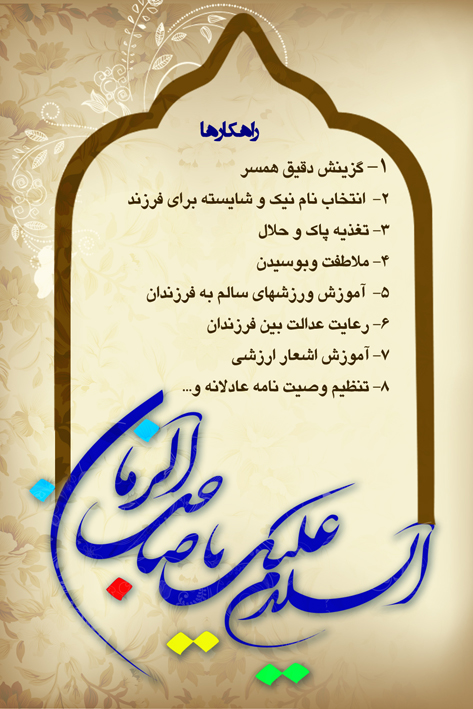 راهکارها
۱- گزینش دقیق همسر
۲- انتخاب نام نیک و شایسته برای فرزند
۳- تغذیه پاک و حلال
۴- ملاطفت وبوسیدن
۵- آموزش ورزشهای سالم به فرزندان
۶- رعایت عدالت بین فرزندان
۷- آموزش اشعار ارزشی
۸- تنظیم وصیت نامه عادلانه و...
السلام علیک یا صاحب الزمان